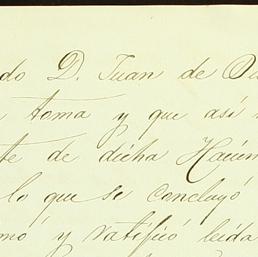 do D. Juan de
toma y que así
te de dicha
lo que se concluyó
mó y ratificó leída